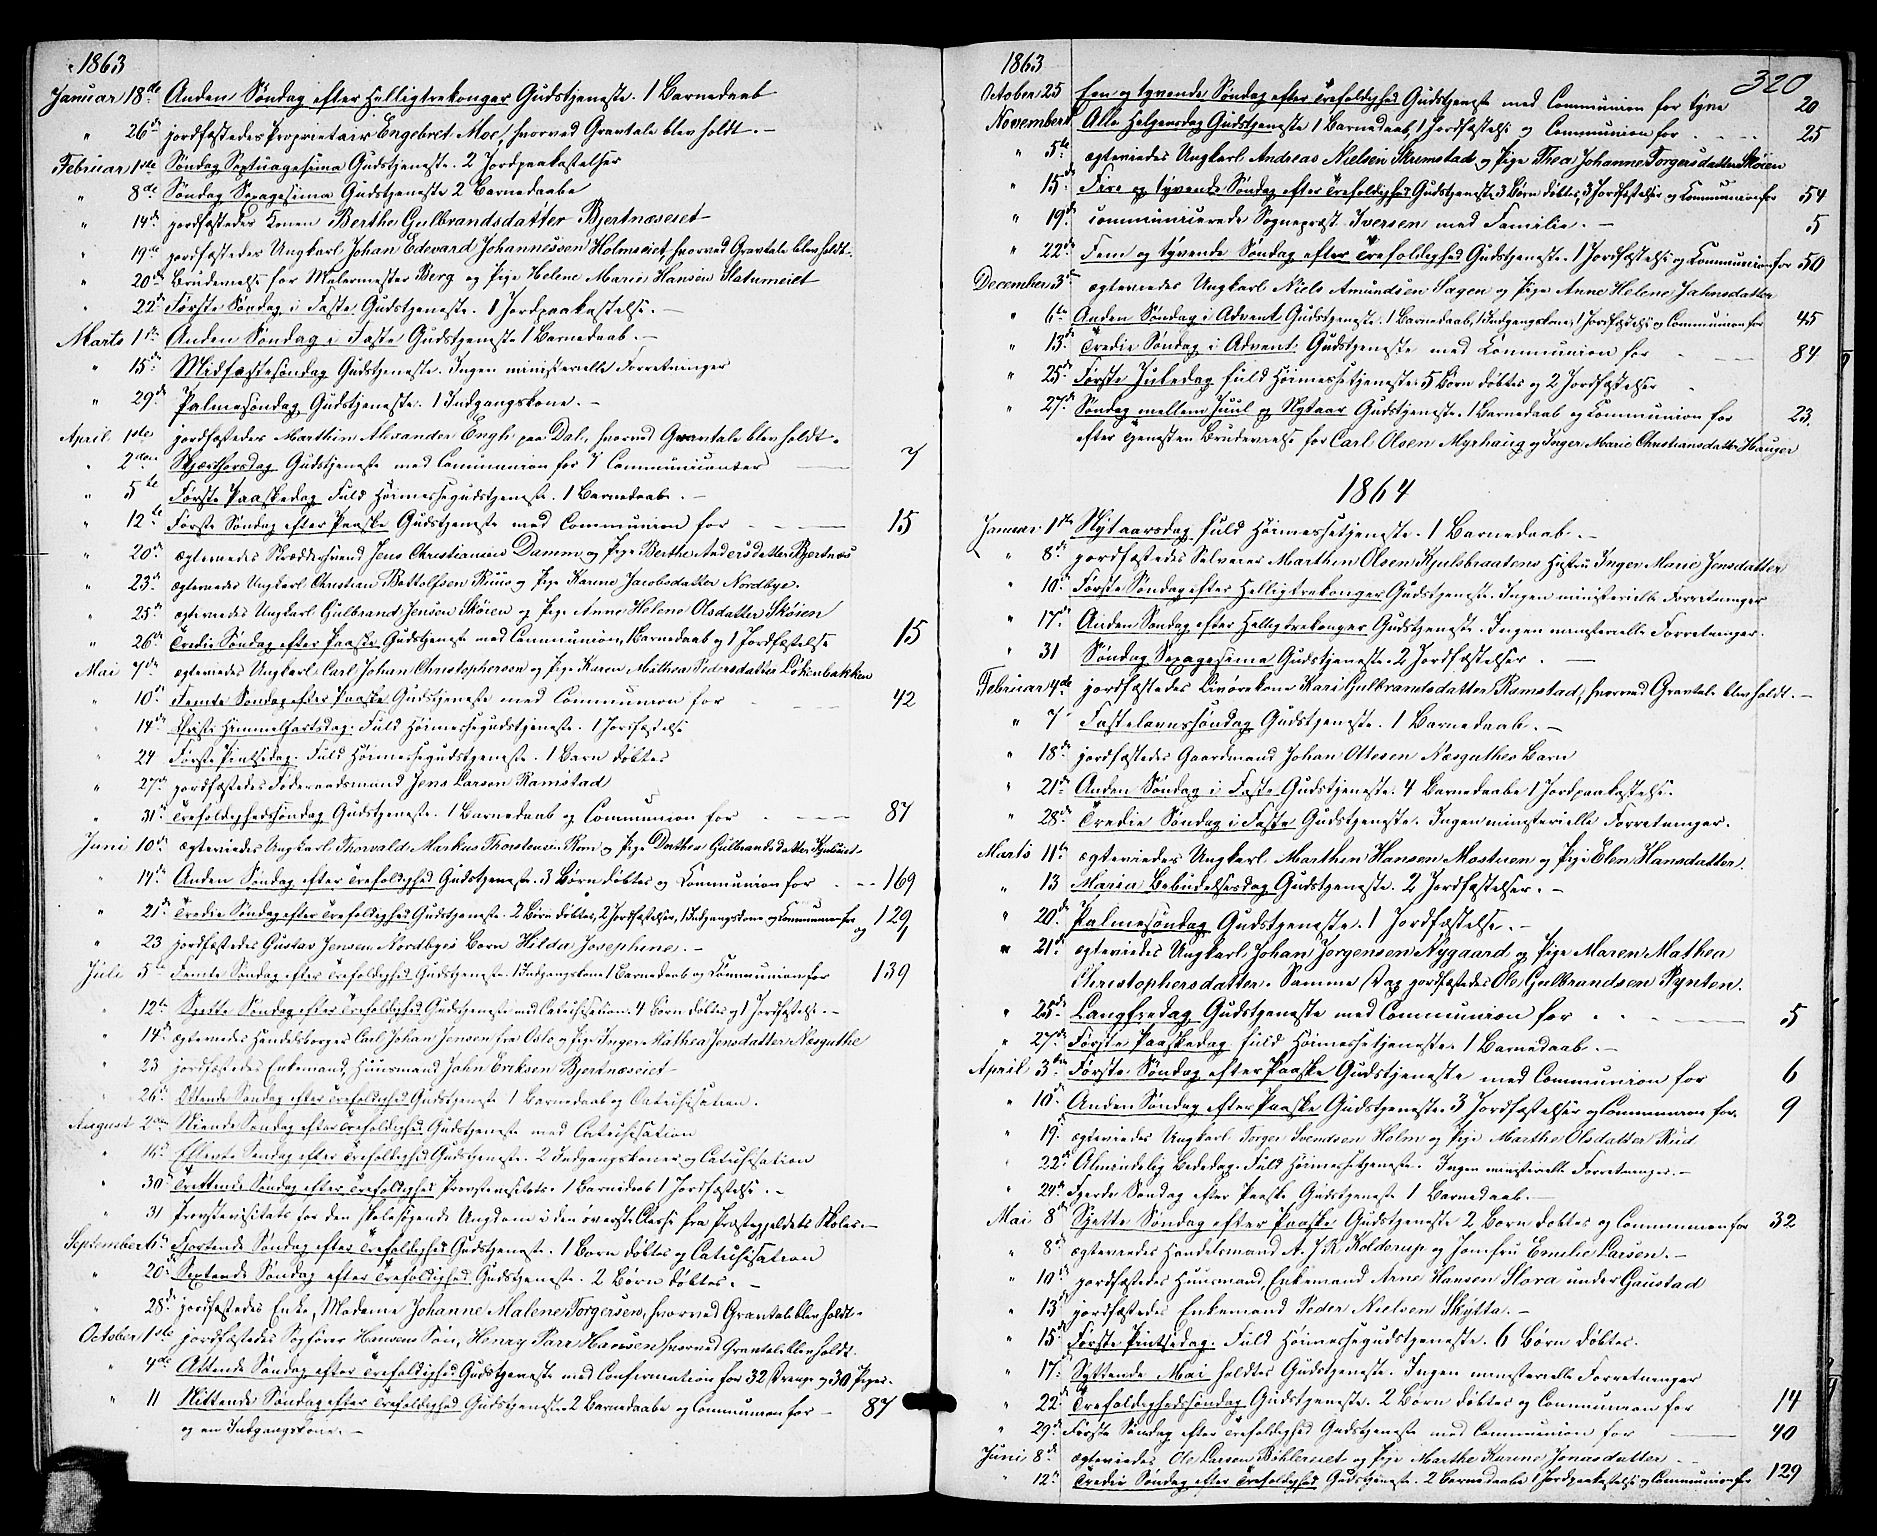 1863
Januar 18de Anden Søndag efter Helligtrekonger Gudstjeneste. 1 Barnedaab
" 26de jordfæstedes Proprietair Engebret Moe, hvorved Gravtale blev holdt. –
Februar 1ste Søndag Septuagesima Gudstjeneste. 2 Jordpaakastelser
" 8de Søndag Sexagesima Gudstjeneste 2 Barnedaabe
" 14de jordfæstedes Konen Berthe Gulbrandsdatter Bjertnæseiet
" 19de jordfæstedes Ungkarl Johan Edevard Johannessen Holmseiet, hvorved Gravtale blev holdt.
" 20de Brudevielse for Malermester Berg og Pige Helene Marie Hansen Slatumeiet
" 22de Første Søndag i Faste Gudstjeneste. 1 Jordpaakastelse. –
Marts 1ste Anden Søndag i Faste Gudstjeneste 1 Barnedaab. –
" 15de Midfastesøndag Gudstjeneste. Ingen ministerielle Forretninger
" 29de Palmesøndag Gudstjeneste. 1 Indgangskone. –
April 1ste jordfæstedes Marthin Alexander Engh paa Dal, hvorved Gravtale blev holdt.
" 2den Skjærthorsdag Gudstjeneste med Communion for 7 Communicanter 7
" 5te Første Paaskedag Fuld Høimessegudstjeneste. 1 Barnedaab. –
" 12te Første Søndag efter Paaske Gudstjeneste med Communion for 15
" 20de ægteviedes Skræddersvend Jens Christiansen Damm og Pige Berthe Andersdatter Bjertnæs
" 23de ægteviedes Ungkarl Christian Bottolfsen Ruus og Pige Karine Jacobsdatter Nordbye.
" 25de ægteviedes Ungkarl Gulbrand Jensen Skøien og Pige Anne Helene Olsdatter Skøien
" 26de Tredie Søndag efter Paaske Gudstjeneste med Communion, 1 Barnedaab og 1 Jordfæstelse 15
Mai 7de ægteviedes Ungkarl Carl Johan Christophersen og Pige Karen Mathea Pedersdatter Løkenbakken
" 10de Femte Søndag efter Paaske Gudstjeneste med Communion for 42
" 14de Christi Himmelfartsdag. Fuld Høimessegudstjeneste. 1 Jordfæstelse
" 24 Første Pintsedag. Fuld Høimessegudstjeneste. 1 Barn døbtes
" 27de jordfæstedes Føderaadsmand Jens Larsen Ramstad
" 31te Trefoldighedssøndag Gudstjeneste. 1 Barnedaab og Communion for 87
Juni 10de ægteviedes Ungkarl Thorvald Markus Thorstensen Ruu og Pige Dorthea Gulbrandsdatter
" 14de Anden Søndag efter Trefoldighed Gudstjeneste. 3 Børn døbtes og Communion for 169
" 21de Tredie Søndag efter Trefoldighed Gudstjeneste. 2 Børn døbtes, 2 Jordfæstelser, 1 Indgangskone og Communion for 129 og 1
" 23 jordfæstedes Gustav Jensen Nordbyes Barn Hilda Josephine. –
Juli 5te Femte Søndag efter Trefoldighed Gudstjeneste. 1 Indgangskone 1 Barnedaab og Communion for 139
" 12te Sjette Søndag efter Trefoldighed Gudstjeneste med Catechisation. 4 Børn døbtes og 1 Jordfæstelse. –
" 14de ægteviedes Handelsborger Carl Johan Jensen fra Oslo og Pige Inger Mathea Jensdatter Næsguthe
" 23 jordfæstedes Enkemand, Huusmand John Eriksen Bjertnæseiet
" 26de Ottende Søndag efter Trefoldighed Gudstjeneste 1 Barnedaab og Catechisation.
August 2den Niende Søndag efter Trefoldighed Gudstjeneste med Catechisation
" 16de Ellevte Søndag efter Trefoldighed Gudstjeneste. 2 Indgangskoner og Catechisation
" 30de Trettende Søndag efter Trefoldighed Provstevisitats. 1 Barnedaab 1 Jordfæstelse. –
" 31 Provstevisitats for den skolesøgende Ungdom i den øverste Classe fra Præstegjeldets Skoler. –
September 6te Fjortende Søndag efter Trefoldighed Gudstjeneste. 1 Barn døbtes og Catechisation
" 20de Sextende Søndag efter Trefoldighed Gudstjeneste. 2 Børn døbtes. –
" 28de jordfæstedes Enke, Madame Johanne Malene Torgersen, hvorved Gravtale blev holdt.
October 1ste jordfæstedes Sogfører Hansens Søn, Henry Parr Hansen hvorved Gravtale blev holdt.
" 4de Attende Søndag efter Trefoldighed Gudstjeneste med Confirmation for 32 Drenge og 30 Piger.
" 11 Nittende Søndag efter Trefoldighed Gudstjeneste. 2 Barnedaabe og Communion for – 87
og en Indgangskone. –
1863
320
October 25 Een og tyvende Søndag efter Trefoldighed Gudstjeneste med Communion for tyve 20
November 1 Alle Helgensdag Gudstjeneste 1 Barnedaab, 1 Jordfæstelse og Communion for 25
" 5te ægteviedes Ungkarl Andreas Nielsen Skrimstad og Pige Thea Johanne Torgersdatter Skøien
" 15de Fire og tyvende Søndag efter Trefoldighed Gudstjeneste. 3 Børn døbtes, 3 Jordfæstelser og Communion for 54
" 19de communicerede Sognepræst Iversen med Familie. – 5
" 22de Fem og tyvende Søndag efter Trefoldighed Gudstjeneste. 1 Jordfæstelse og Communion for 50
December 3de ægteviedes Ungkarl Niels Amundsen Sagen og Pige Anne Helene Jahnsdatter
" 6te Anden Søndag i Advent Gudstjeneste. 1 Barnedaab, 1 Indgangskone, 1 Jordfæstelse og Communion for 45
" 13de Tredie Søndag i Advent. Gudstjeneste med Communion for 84
" 25de Første Juledag fuld Høimessetjeneste. 5 Børn døbtes og 2 Jordfæstelser
" 27de Søndag mellem Juul og Nytaar Gudstjeneste. 1 Barnedaab og Communion for 23.
efter Tjenesten Brudevielse for Carl Olsen Myrhaug og Inger Marie Christiansdatter Hauger
1864
Januar 1ste Nytaarsdag fuld Høimessetjeneste. 1 Barnedaab. –
" 8de jordfæstedes Selveier Marthin Olsen Kjulsbraatens Hustru Inger Marie Jensdatter
" 10de Første Søndag efter Helligtrekonger Gudstjeneste. Ingen ministerielle Forretninger
" 17de Anden Søndag efter Helligtrekonger Gudstjeneste. Ingen ministerielle Forretninger.
" 31 Søndag Sexagesima Gudstjeneste. 2 Jordfæstelser. –
Februar 4de jordfæstedes Livørekone Kari Gulbrandsdatter Ramstad, hvorved Gravtale blev holdt. –
" 7 Fastelavnssøndag Gudstjeneste. 1 Barnedaab. –
" 18de jordfæstedes Gaardmand Johan Ottesen Næsguthes Barn
" 21de Anden Søndag i Faste Gudstjeneste. 4 Barnedaabe 1 Jordpaakastelse.
" 28de Tredie Søndag i Faste Gudstjeneste. Ingen ministerielle Forretninger.
Marts 11te ægteviedes Ungkarl Marthin Hansen Mostuen og Pige Elen Hansdatter.
" 13 Maria Bebudelsesdag Gudstjeneste. 2 Jordfæstelser. –
" 20de Palmesøndag Gudstjeneste. 1 Jordfæstelse. –
" 21de ægteviedes Ungkarl Johan Jørgensen Nygaard og Pige Maren Mathea
Christophersdatter. Samme Dag jordfæstedes Ole Gulbrandsen Rynten.
" 25de Langfredag Gudstjeneste med Communion for 5
" 27de Første Paaskedag fuld Høimessetjeneste. 1 Barnedaab. –
April 3die Første Søndag efter Paaske Gudstjeneste med Communion for 6
" 10de Anden Søndag efter Paaske Gudstjeneste. 3 Jordfæstelser og Communion for 9
" 19 ægteviedes Ungkarl Torger Svendsen Holm og Pige Marthe Olsdatter Rud
" 22de Almindelig Bededag. Fuld Høimessetjeneste. Ingen ministerielle Forretninger. –
" 24de Fjerde Søndag efter Paaske Gudstjeneste 1 Barnedaab. –
Mai 8de Sjette Søndag efter Paaske Gudstjeneste 2 Børn døbtes og Communion for 32
" 8de ægteviedes Handelsmand A. J. K. Kolderup og Jomfru Emilie Larsen. –
" 10de jordfæstedes Huusmand, Enkemand Arne Hansen Slora under Gaustad
" 13de jordfæstedes Enkemand Peder Nielsen Skytta. –
" 15de Første Pintsedag. Fuld Høimessegudstjeneste. 6 Børn døbtes.
" 17de Syttende Mai holdtes Gudstjeneste. Ingen ministerielle Forretninger
" 22de Trefoldighedssøndag Gudstjeneste. 2 Børn døbtes og Communion for 14
" 29de Første Søndag efter Trefoldighed Gudstjeneste med Communion for 40
Juni 8de ægteviedes Ole Larsen Bihlereiet og Pige Marthe Karine Jonasdatter
" 12te Tredie Søndag efter Trefoldighed Gudstjeneste. 2 Barnedaabe 1 Jordpaakastelse og Communion for 129